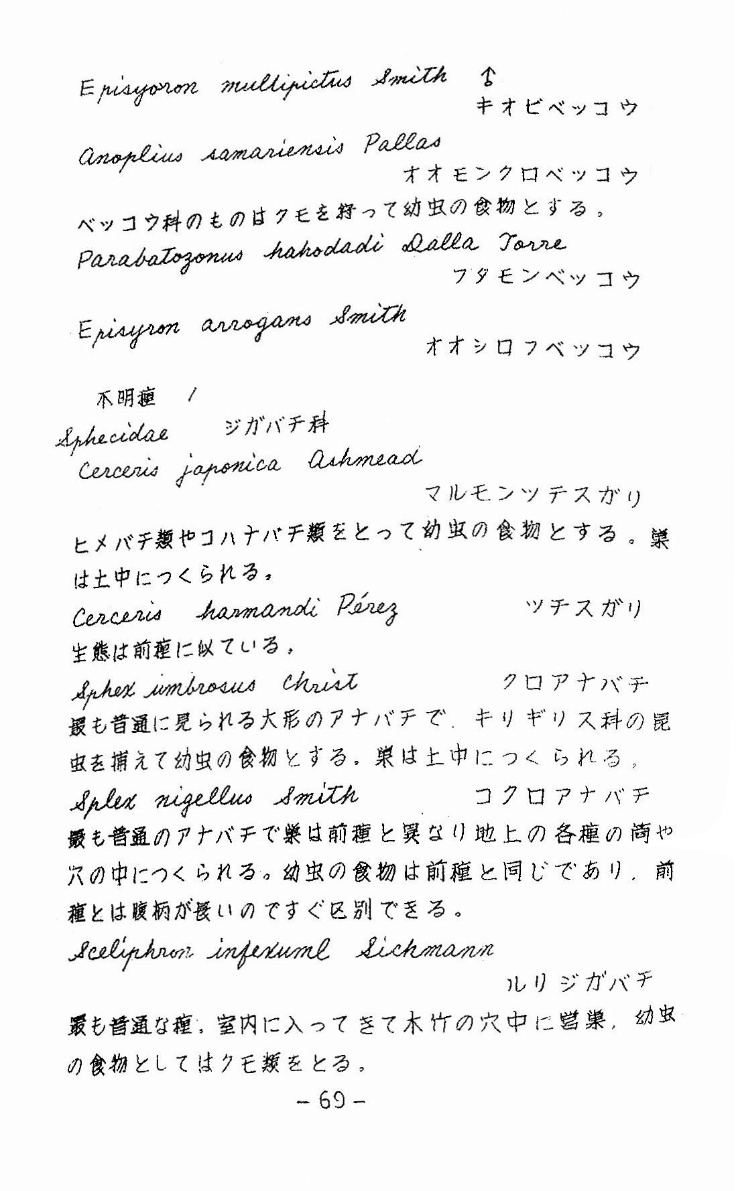 Episyoron mullipictus Smith ♂
キオビベッコウ
Anoplius samariensis Pallas
オオモンクロベッコウ
ベッコウ科のものはクモを狩って幼虫の食物とする。
Parabatozonus hahodadi Dalla Torre
フタモンベッコウ
Episyron arrogans Smith
オオシロフベッコウ
不明種 1
Sphecidae ジガバチ科
Cerceris japonica Ashmead
マルモンツチスガリ
ヒメバチ類やコハナバチ類をとって幼虫の食物とする。巣
は土中につくられる。
Cerceris harmandi Pérez ツチスガリ
生態は前種に似ている。
Sphex umbrosus Christ クロアナバチ
最も普通に見られる大形のアナバチで、キリギリス科の昆
虫を捕えて幼虫の食物とする。巣は土中につくられる。
Splex nigellus Smith コクロアナバチ
最も普通のアナバチで巣は前種と異なり地上の各種の筒や
穴の中につくられる。幼虫の食物は前種と同じであり、前
種とは腹柄が長いのですぐ区別できる。
Sceliphron infexuml Sichmann
ルリジガバチ
最も普通な種。室内に入ってきて木竹の穴中に営巣、幼虫
の食物としてはクモ類をとる。
-69-